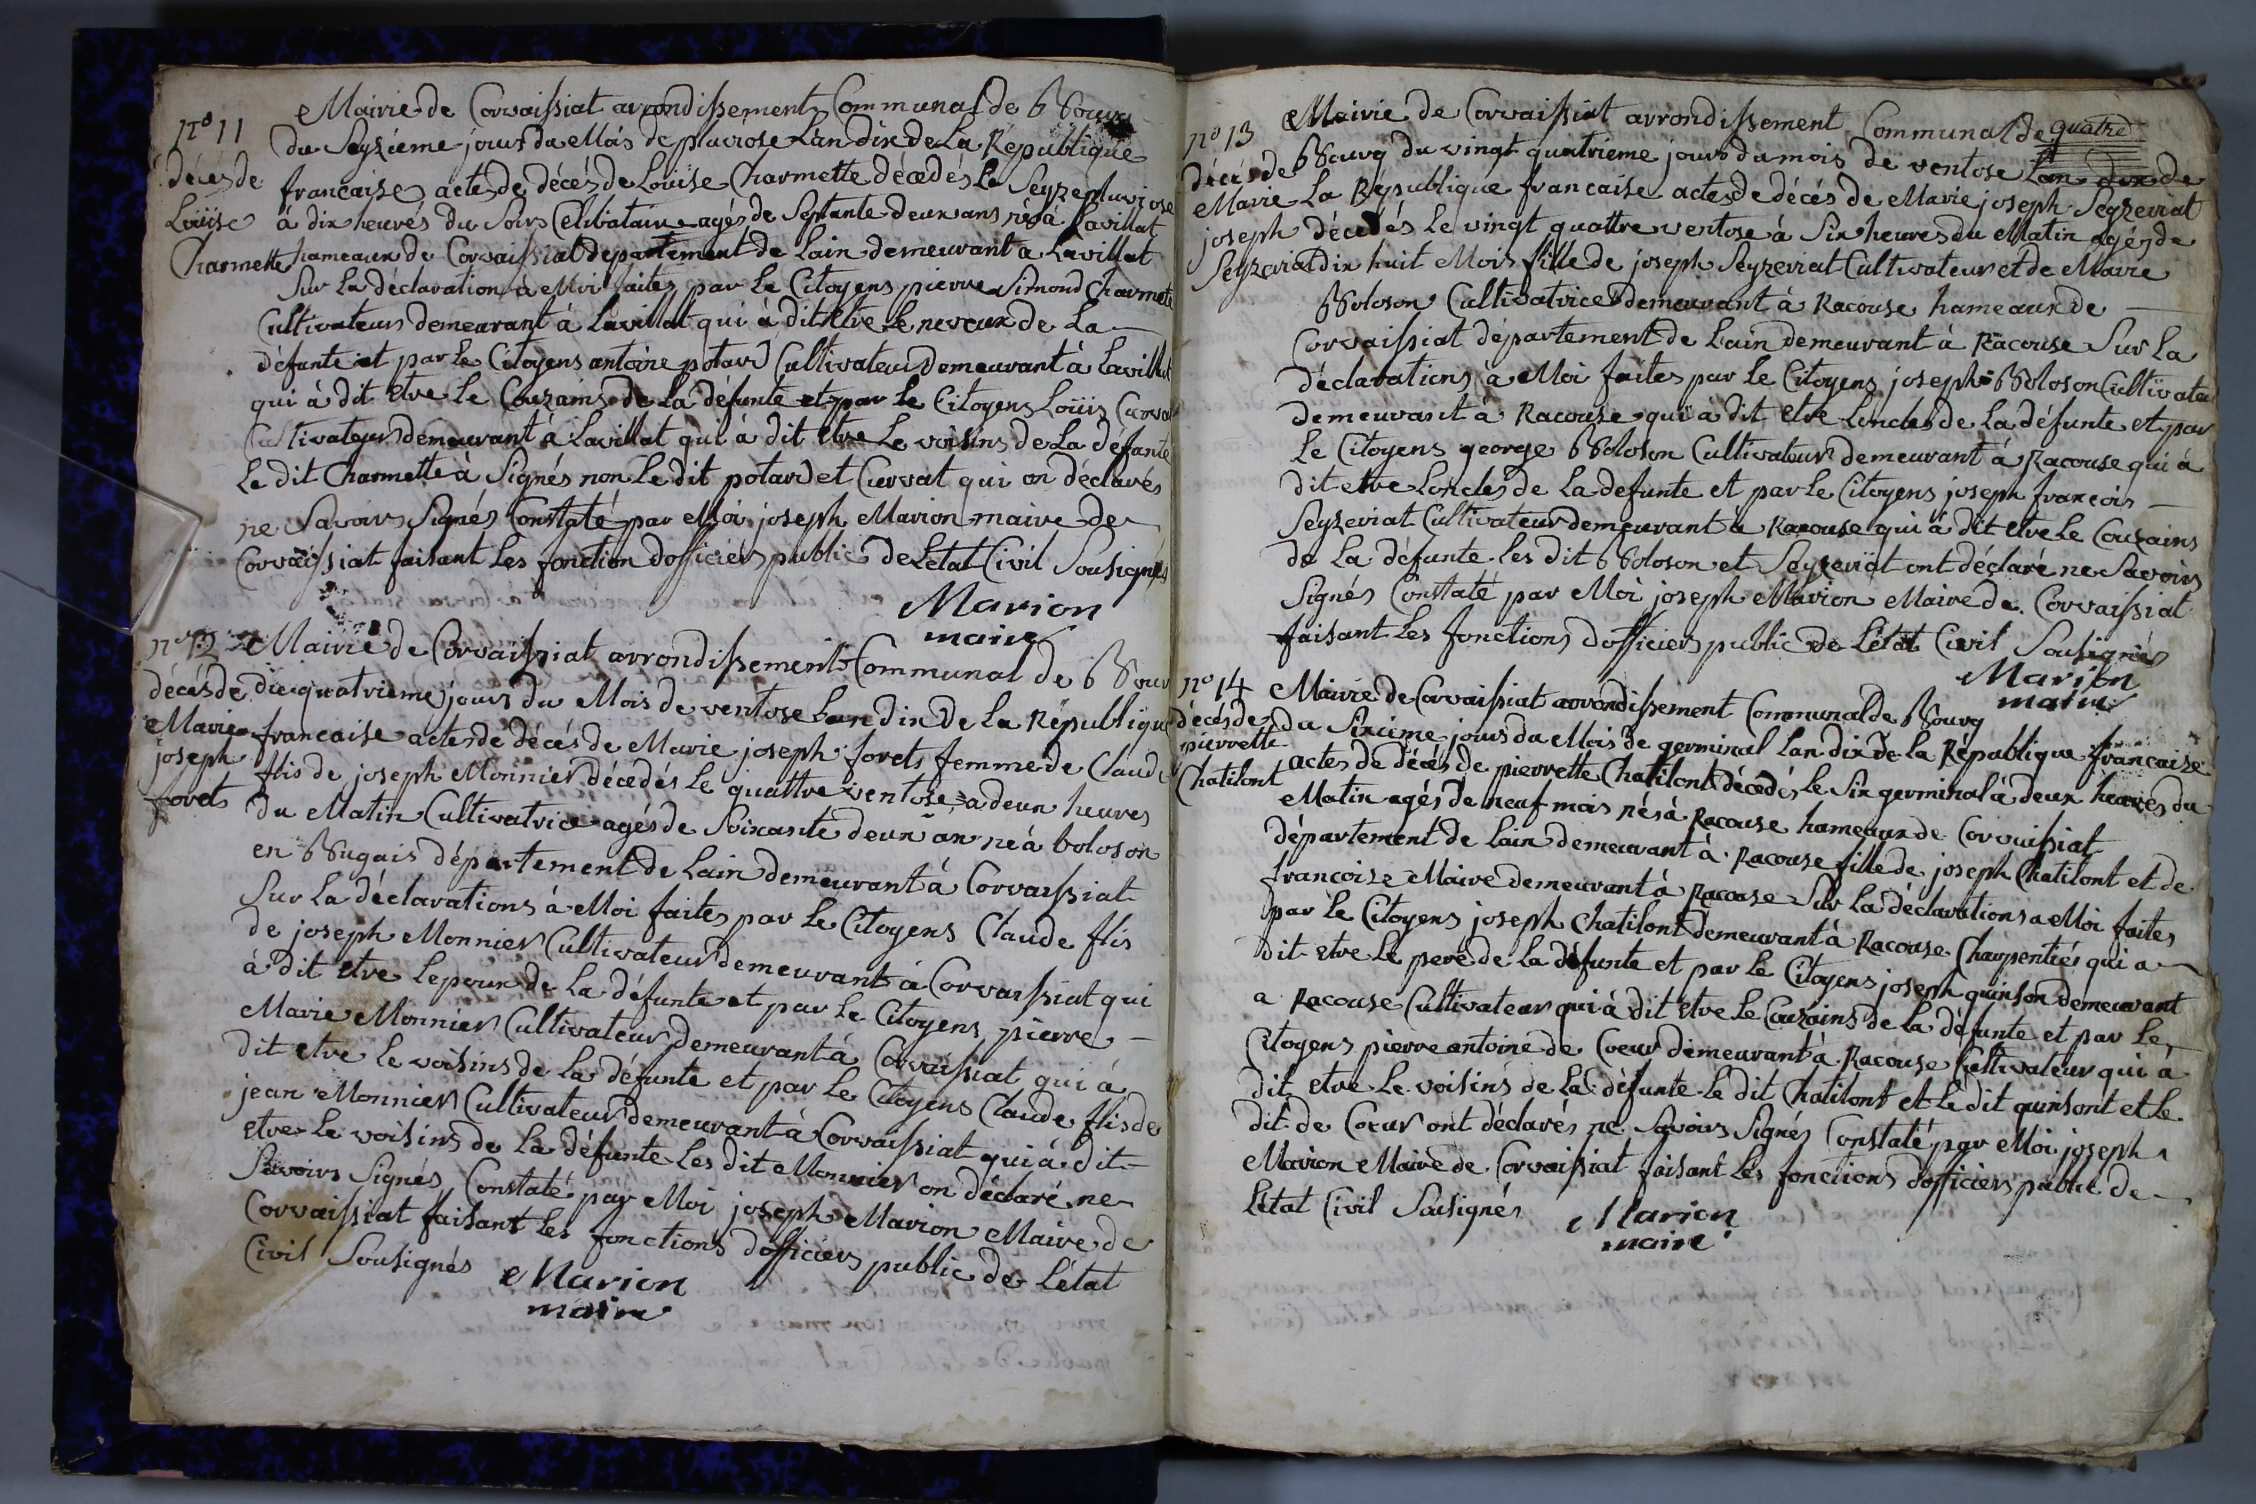 Mairie de Corvaissiat arrondissement Communal de bBourg
n° 11
du Seyziéme jours du Mois de pluviose Lan dix de La Republique
décés de
francaise actes de décés de Loüise Charmette décedés Le Seyze pluviose
Loüise
à dix heurés du Soirs Celibataire agés de Septante deux ans nés à Lavillat
Charmette
hameaux de Corvaissiat departement de Lain demeurant a Lavillat
Sur La déclaration à Moi faites par Le Citoyens pierre Simond Charmete
Cultivateurs demeurant à Lavillat qui à dit Etre Le neveux de La
défunte et par Le Citoyens antoine potard Cultivateur Demeurant à Lavillat
qui à dit Etre Le Couzains de La défunte et par Le Citoyens Loüis Curvat
Cultivateurs demeurant à Lavillat qui à dit Etre Le voisins de La défunte
Le dit Charmette à Signés non Le dit potard et Curvat qui on déclarés
ne Savoirs Signés Constaté par Moi joseph Marion maire de
Corvaissiat faisant Les fonction dofficiérs public de Letat Civil Sousignés
Marion
maire
n° 12
Mairie de Corvaissiat arrondissement Communal de bBour
décés de
du quatrieme jours du Mois de ventose Lan dix de La Républiqu
Marie
francaise actes de décés de Marie joseph forets femme de Claud
joseph
flis de joseph Monnier décedés Le quattre ventose a deux heures
forets
du Matin Cultivatrice agés de Soixante deux an né à boloson
en bBugais département de Lain demeurant à Corvaissiat
Sur La déclarations à Moi faites par Le Citoyens Claude flis
de joseph Monnier Cultivateur demeurant à Corvaissiat qui
à dit Etre Lepoux de La défunte et par Le Citoyens pierre
Marie Monnier Cultivateur demeurant à Corvaissiat qui à
dit etre Le voisins de La défunte et par Le Citoyens Claude flis de
jean Monnier Cultivateur demeurant à Corvaissiat qui à dit
etre Le voisins de La défunte Les dit Monnier on déclaré ne
Savoirs Signés Constaté par Moi joseph Marion Maire de
Corvaissiat faisant Les fonctions dofficiers public de Létat
Civil Sousignés
Marion
maire
n° 13
Mairie de Corvaissiat arrondissement Communal de quatre
décés de
bBourg du vingt quatrieme jours du mois de ventose Lan dix de
Marie
La République francaise actes de décés de Marie joseph Seyzeriat
joseph
décedés Le vingt quattre ventose à Six heures du Matin agés de
Seyzeriat
dix huit Mois fille de joseph Seyzeriat Cultivateur et de Marie
bBoloson Cultivatrice demeurant à Racouse hameaux de
Corvaissiat département de Lain demeurant à Racouse Sur La
déclarations a Moi faites par Le Citoyens joseph bBoloson Cultivateu
demeurant à Racouse qui à dit etre Loncles de La défunte et par
Le Citoyens george bBoloson Cultivateur demeurant à Racouse qui à
dit etre Loncles de La defunte et par Le Citoyens joseph françois
Seyzeriat Cultivateur demeurant a Racouse qui à dit Etre Le Couzains
de La défunte Les dit bBoloson et Seyzeriat ont déclaré ne Savoirs
Signés Constaté par Moi joseph Marion Maire de Corvaissiat
faisant Les fonctions dofficiers public de Létat Civil Sousignés
Marion
maire
n° 14
Mairie de Corvaissiat arrondissement Communal de bBourg
décés de
du Sixieme jours du Mois de germinal Lan dix de la République francaise
pierrette
actes de décés de pierrette Chatilont décedés Le Six germinal à deux heures du
Chatilont
Matin agés de neuf mois nés à Racouse hameaux de Corvaissiat
département de Lain demeurant à Racouse fille de joseph Chatilont et de
françoise Maire demeurant à Racouse Sur La déclarations a Moi faites
par Le Citoyens joseph Chatilont demeurant à Racouse Charpentiés qui a
dit etre Le pere de La défunte et par Le Citoyens joseph quinson demeurant
a Racouse Cultivateur qui à dit etre Le Couzains de La défunte et par Le
Citoyens pierre antoine de Coeur demeurant à Racouse Cultivateur qui à
dit etre Le voisins de La défunte Le dit Chatilont et Le dit quinsont et Le
dit de Coeur ont déclarés ne Savoirs Signés Constaté par Moi joseph
Marion Maire de Corvaissiat faisant Les fonctions dofficiers public de
Létat Civil Sousignés
Marion
maire